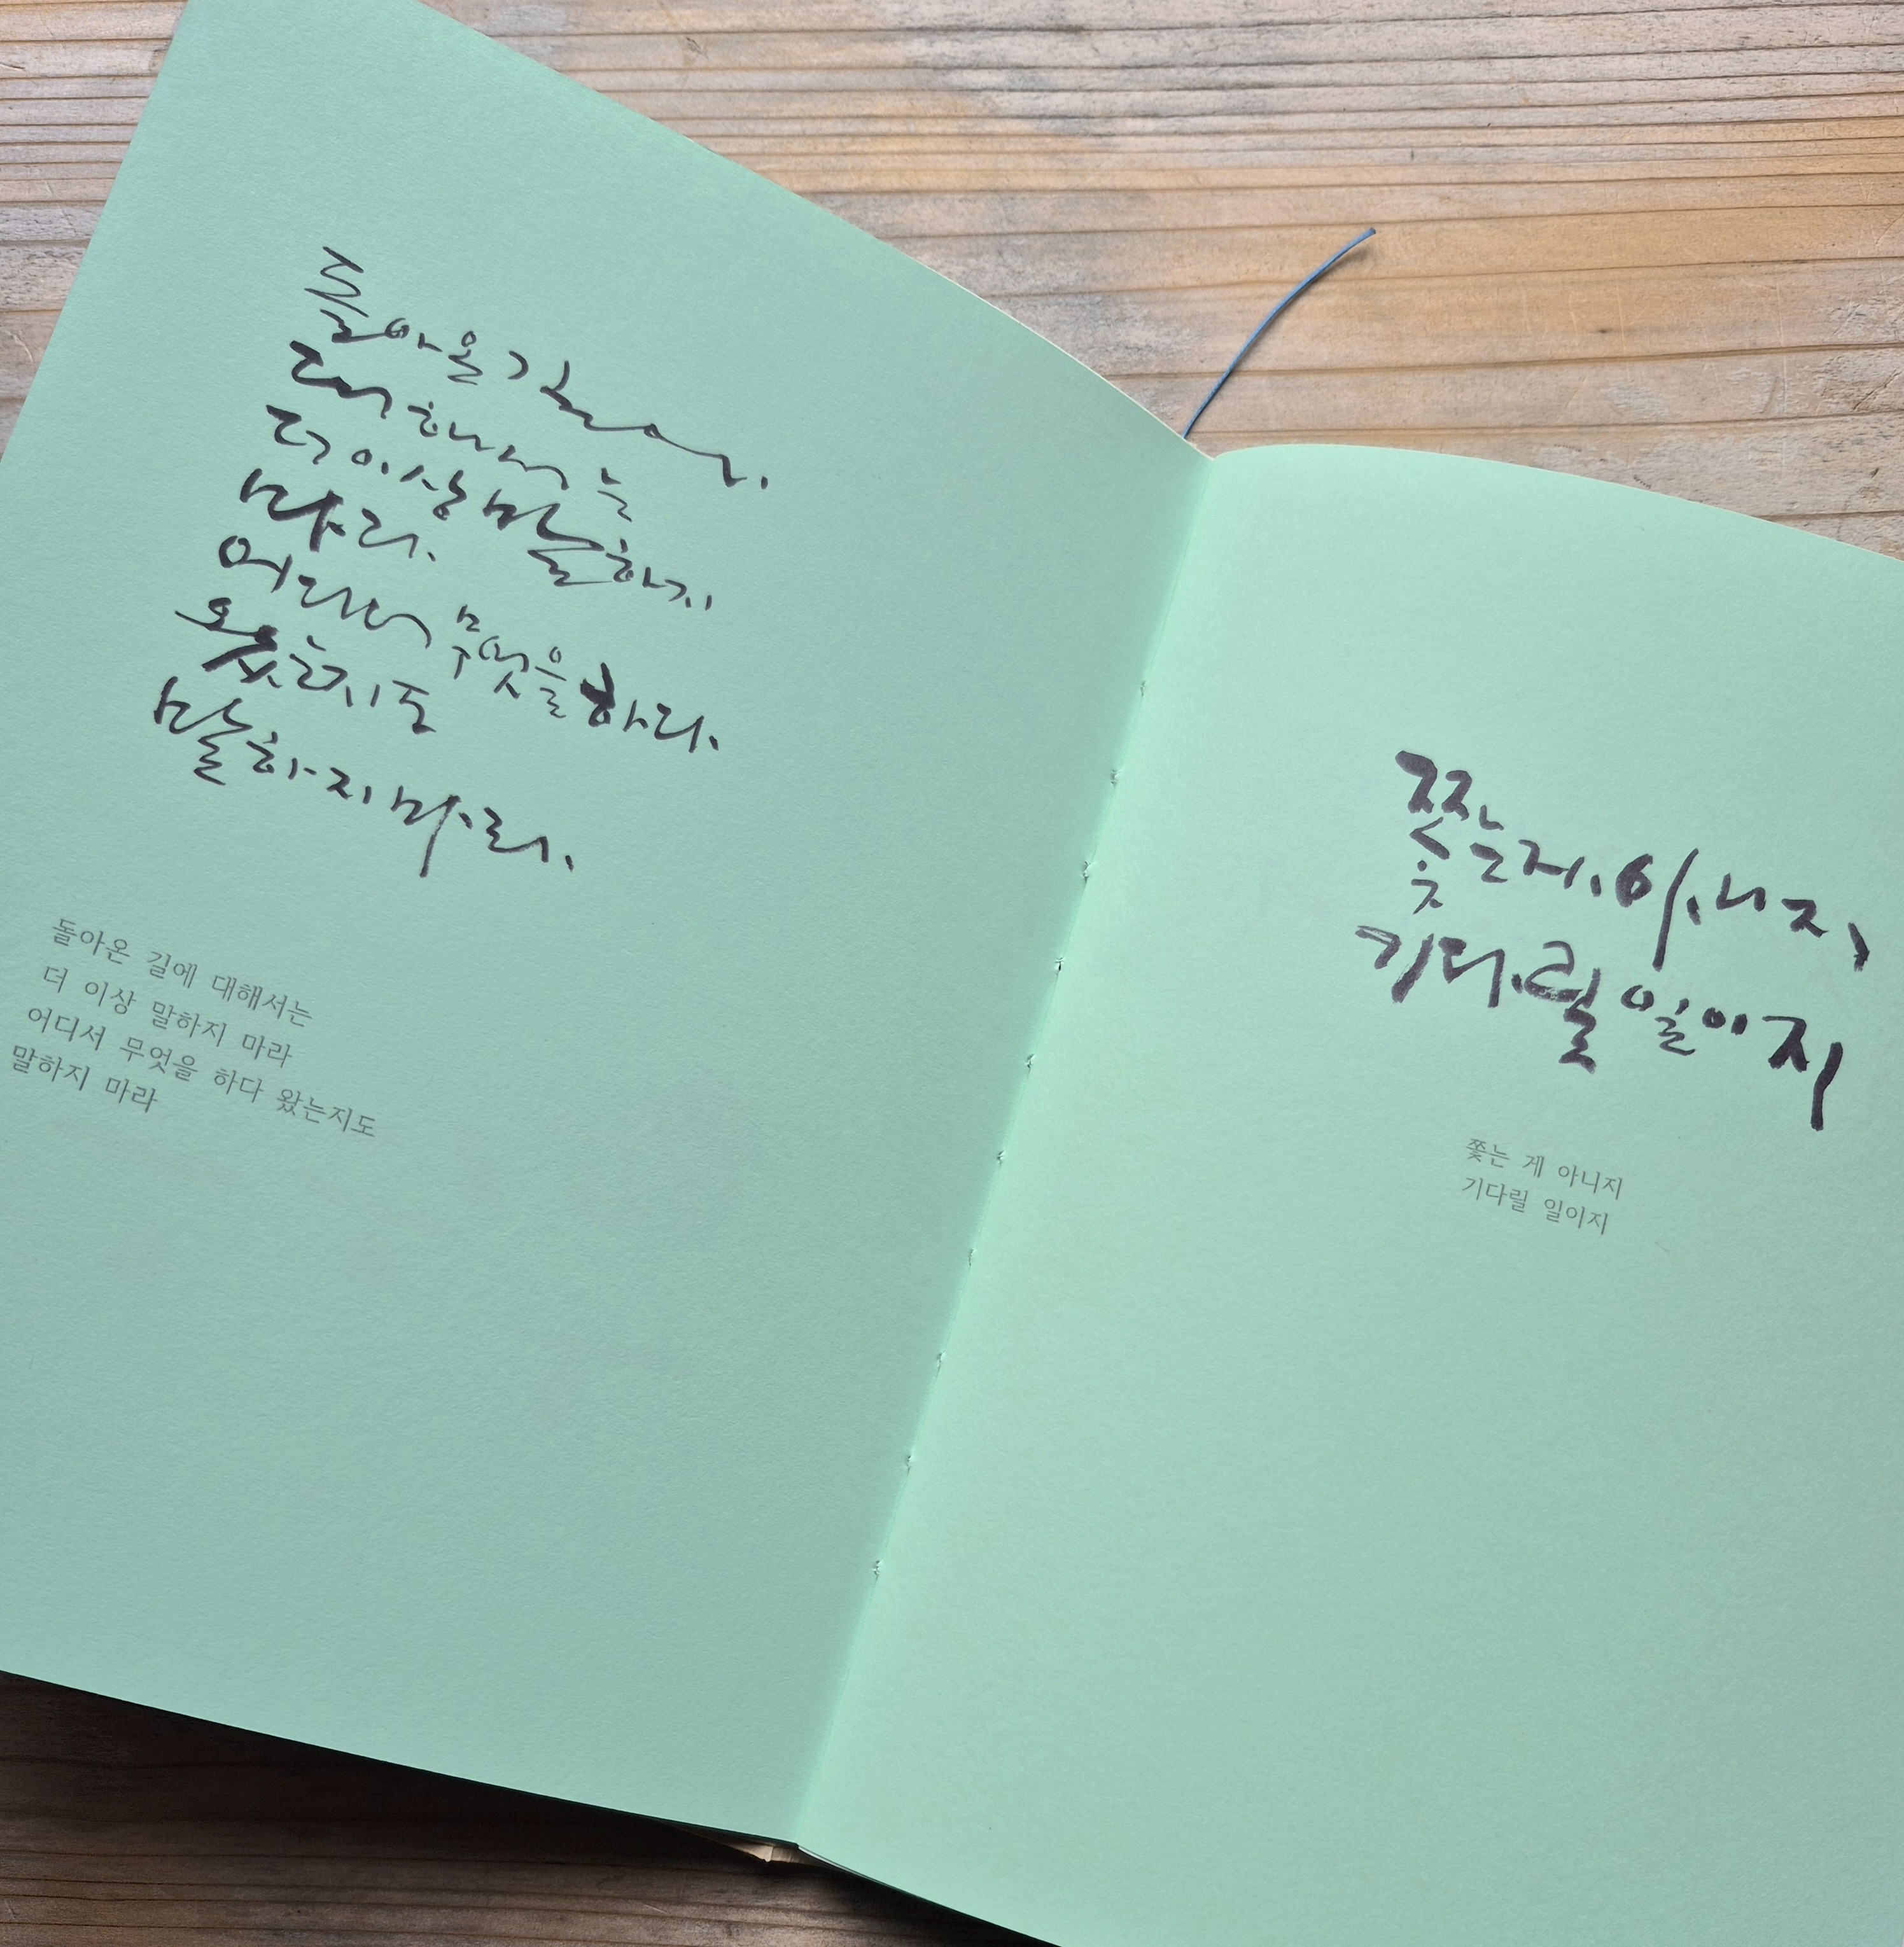 돌아온 길에
대해서는
더 이상 말하지
마라.
어디서 무엇을 하다.
왔는지도
말하지 마라.
돌아온 길에 대해서는
더 이상 말하지 마라
어디서 무엇을 하다 왔는지도
말하지 마라
쫓는 게 아니지
기다릴 일이지
쫓는 게 아니지
기다릴 일이지